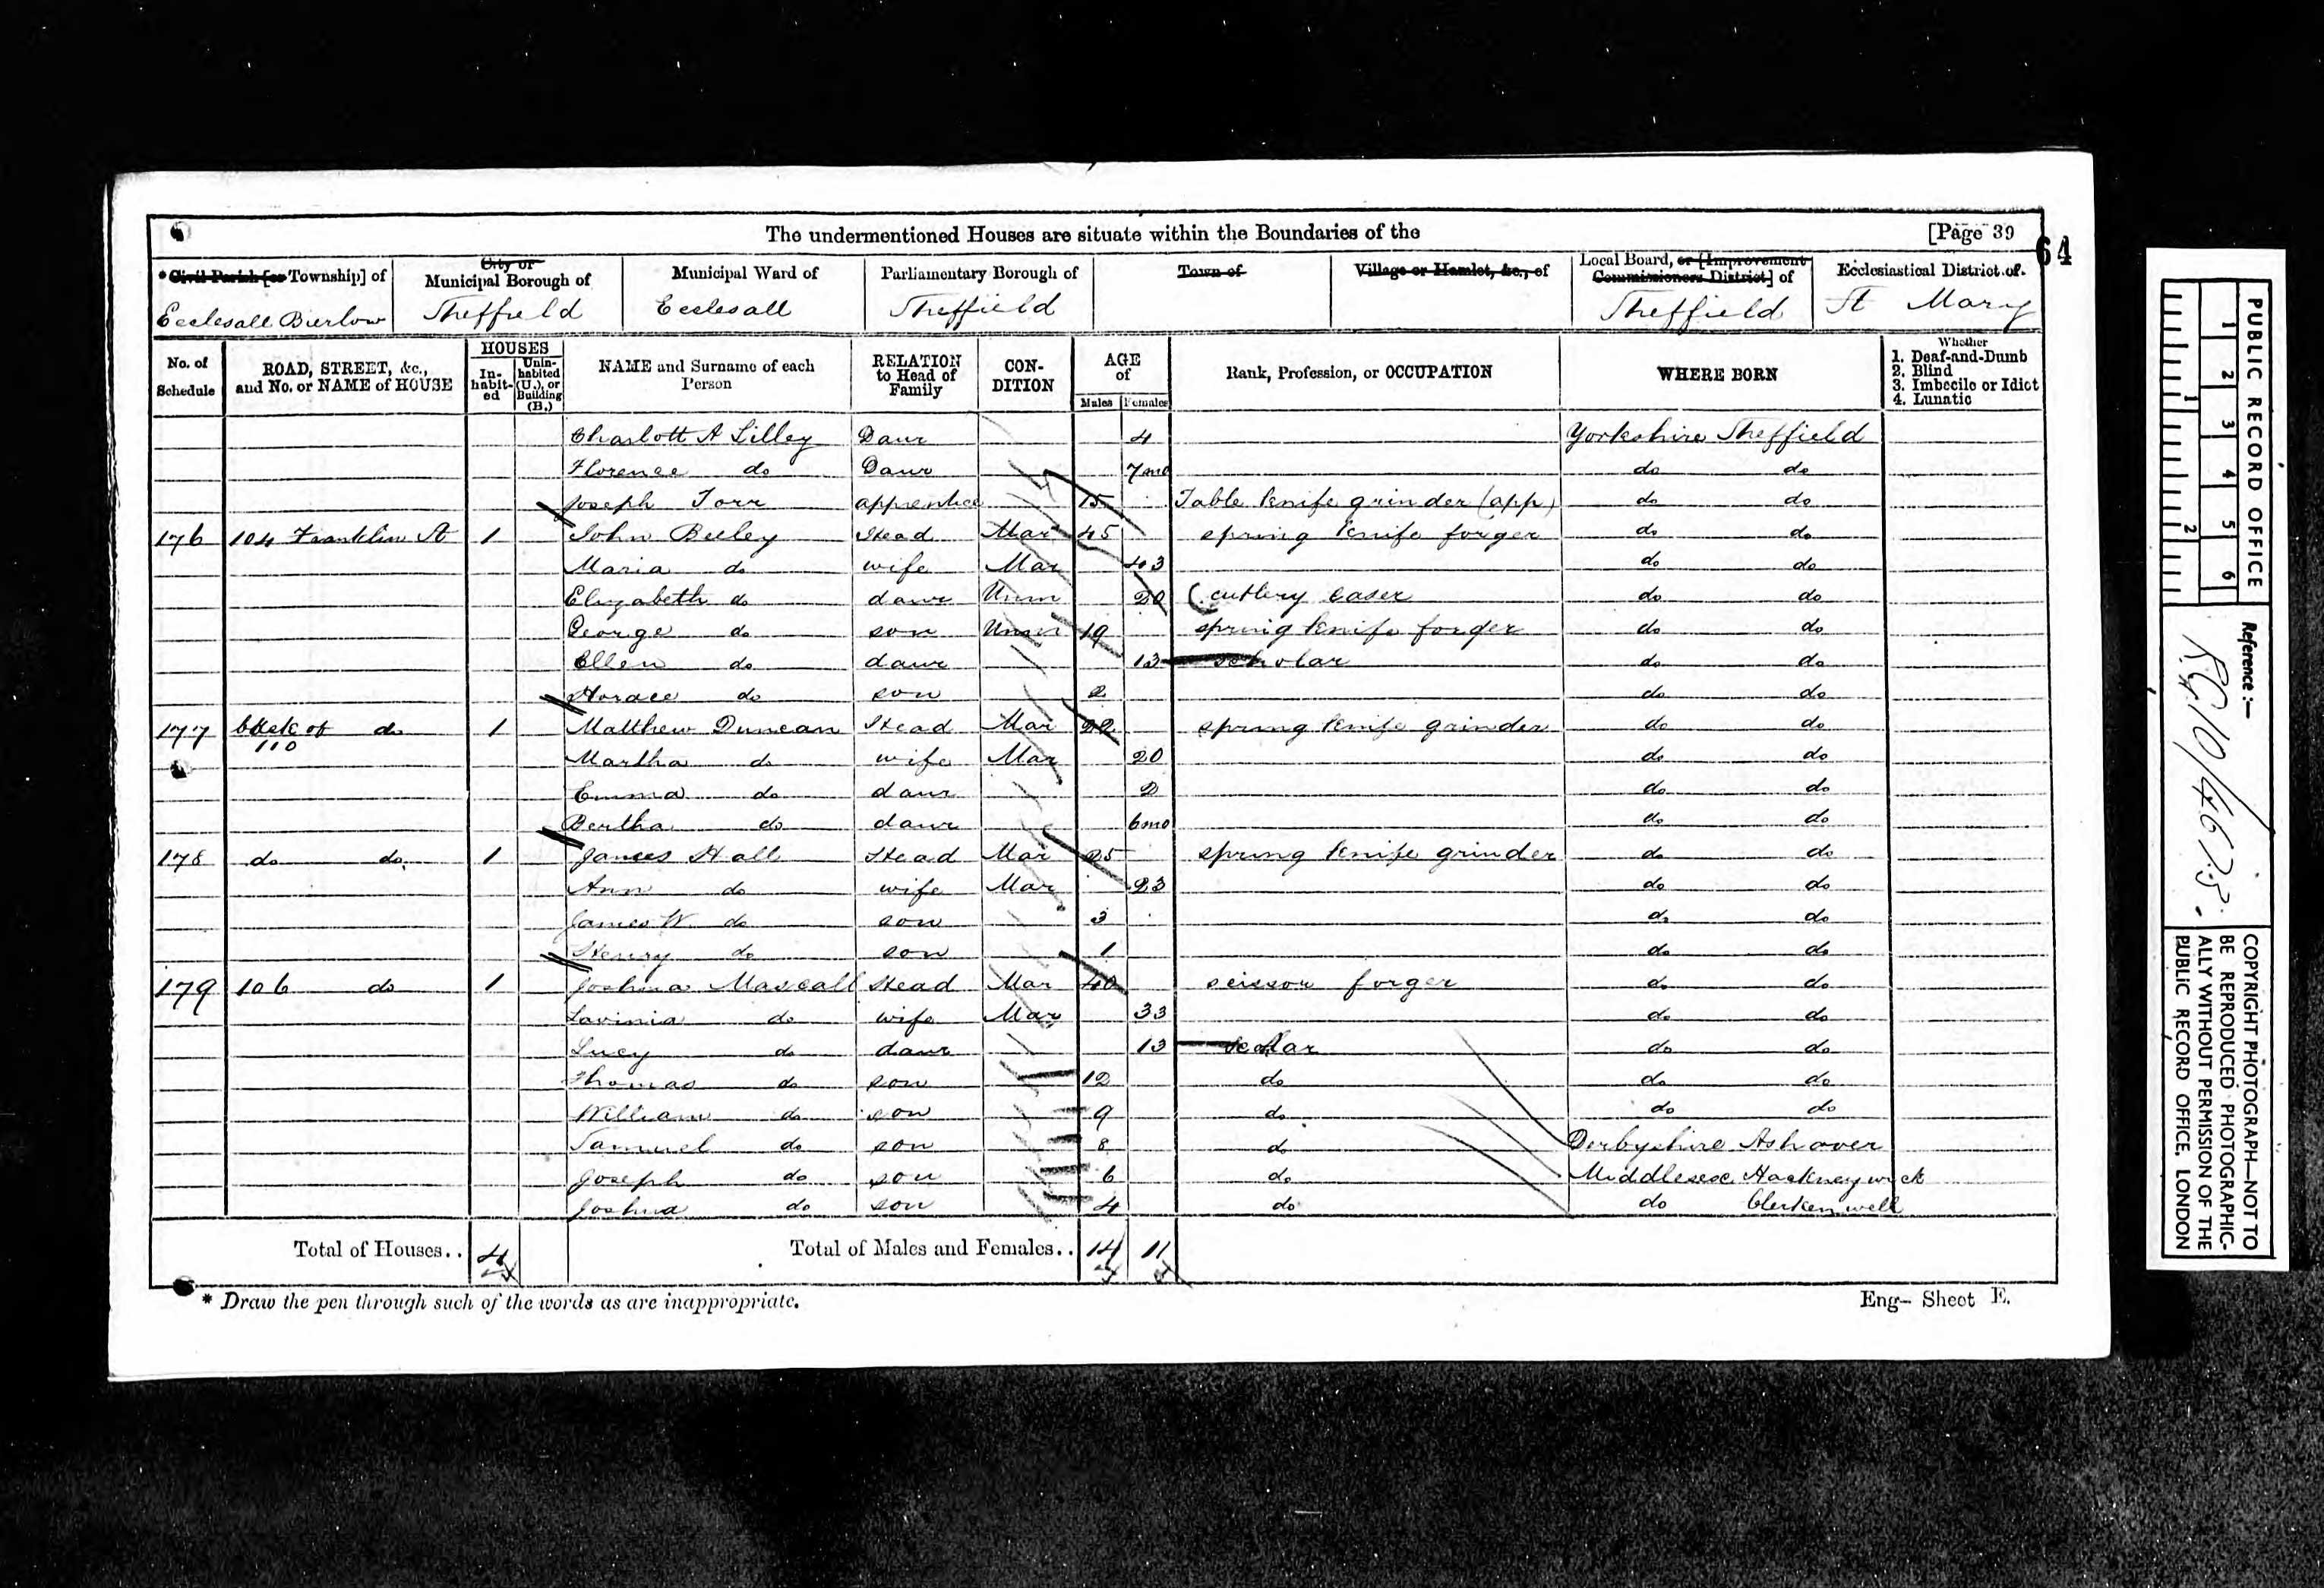 The undermentioned Houses are situate within the Boundaries of the [Page 39
64
*Civil Parish [or Township] of
City or Municipal Borough of
Municipal Ward of
Parliamentary Borough of
Town of
Village or Hamlet, &c., of
Local Board, or [Improvement Commissioners District] of
Ecclesiastical District of
Ecclesall Bierlow
Sheffield
Ecclesall
Sheffield
Sheffield
St Mary
No. of Schedule
ROAD, STREET, &c., and No. or NAME of HOUSE
HOUSES
In-habit-ed
Unin-habited (U.), or Building (B.)
NAME and Surname of each Person
RELATION to Head of Family
CON-DITION
AGE of
Males Females
Rank, Profession, or OCCUPATION
WHERE BORN
Whether
1. Deaf-and-Dumb
2. Blind
3. Imbecile or Idiot
4. Lunatic
Charlott A Lilley Daur 4 Yorkshire Sheffield
Florence do Daur 7mo do do
Joseph Torr apprentice 15 Table knife grinder (app) do do
176 104 Franklin St 1 John Beeley Head Mar 45 spring knife forger do do
Maria do wife Mar 43 do do
Elizabeth do daur Unm 20 cutlery caser do do
George do son Unm 19 spring knife forger do do
Ellen do daur 13 scholar do do
Horace do son 2 do do
177 back of 110 do 1 Matthew Duncan Head Mar 22 spring knife grinder do do
Martha do wife Mar 20 do do
Emma do daur 2 do do
Bertha do daur 6mo do do
178 do do 1 James Hall Head Mar 25 spring knife grinder do do
Ann do wife Mar 23 do do
James W do son 3 do do
Henry do son 1 do do
179 106 do 1 Joshua Mascall Head Mar 40 scissor forger do do
Lavinia do wife Mar 33 do do
Lucy do daur 13 do do
Thomas do son 12 do do do
William do son 9 do do do
Samuel do son 8 do Derbyshire Ashover
Joseph do son 6 do Middlesex Hackney wick
Joshua do son 4 do do Clerkenwell
Total of Houses.. 4 Total of Males and Females.. 14 11
* Draw the pen through such of the words as are inappropriate.
Eng- Sheet E.
PUBLIC RECORD OFFICE
1 2 3 4 5 6
1 2
Reference :-
RG 10/4673
COPYRIGHT PHOTOGRAPH—NOT TO
BE REPRODUCED PHOTOGRAPHIC-
ALLY WITHOUT PERMISSION OF THE
PUBLIC RECORD OFFICE, LONDON